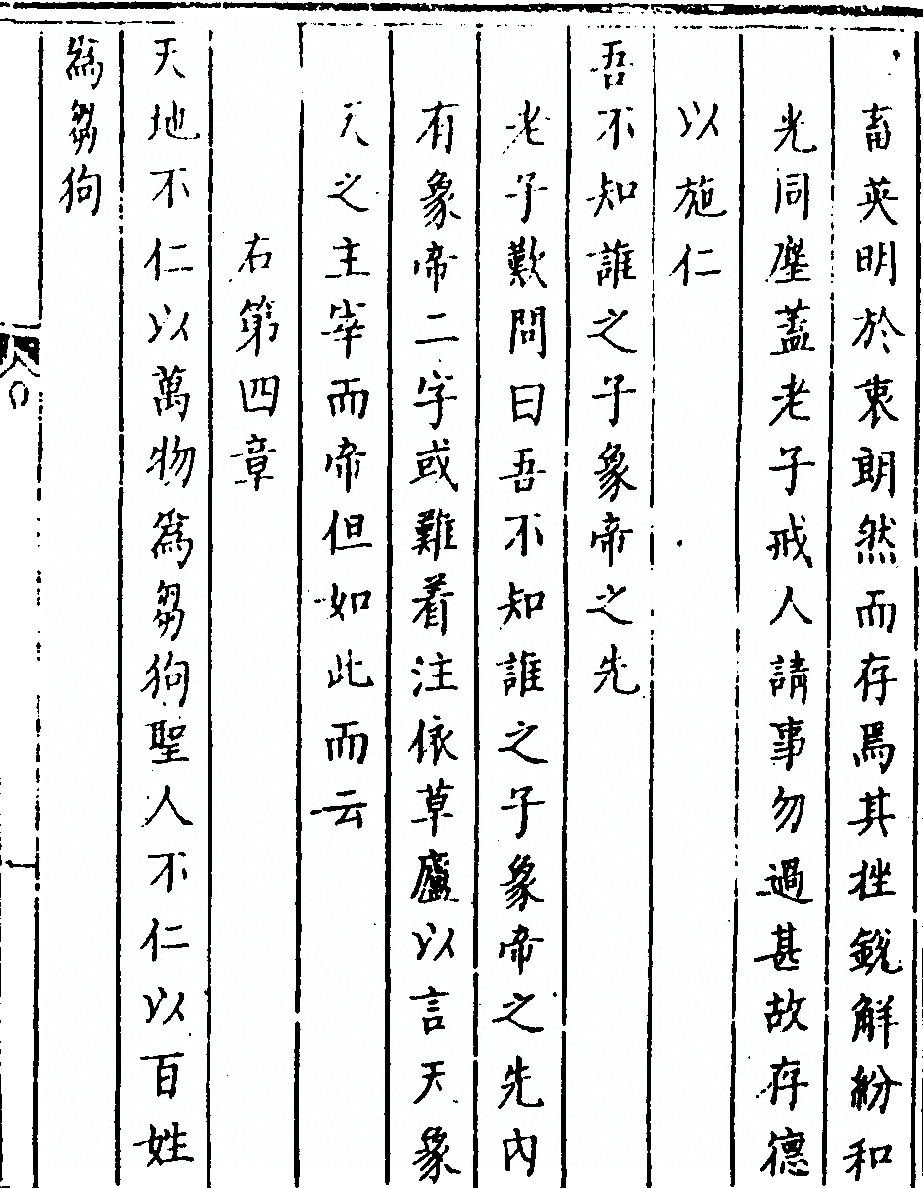 畜英明於衷朗然而存焉其挫銳解紛和
光同塵蓋老子戒人請事勿過甚故存德
以施仁
吾不知誰之子象帝之先
老子歎問曰吾不知誰之子象帝之先內
有象帝二字或難着注依草廬以言天象
天之主宰而帝但如此而云
右第四章
天地不仁以萬物為芻狗聖人不仁以百姓
為芻狗